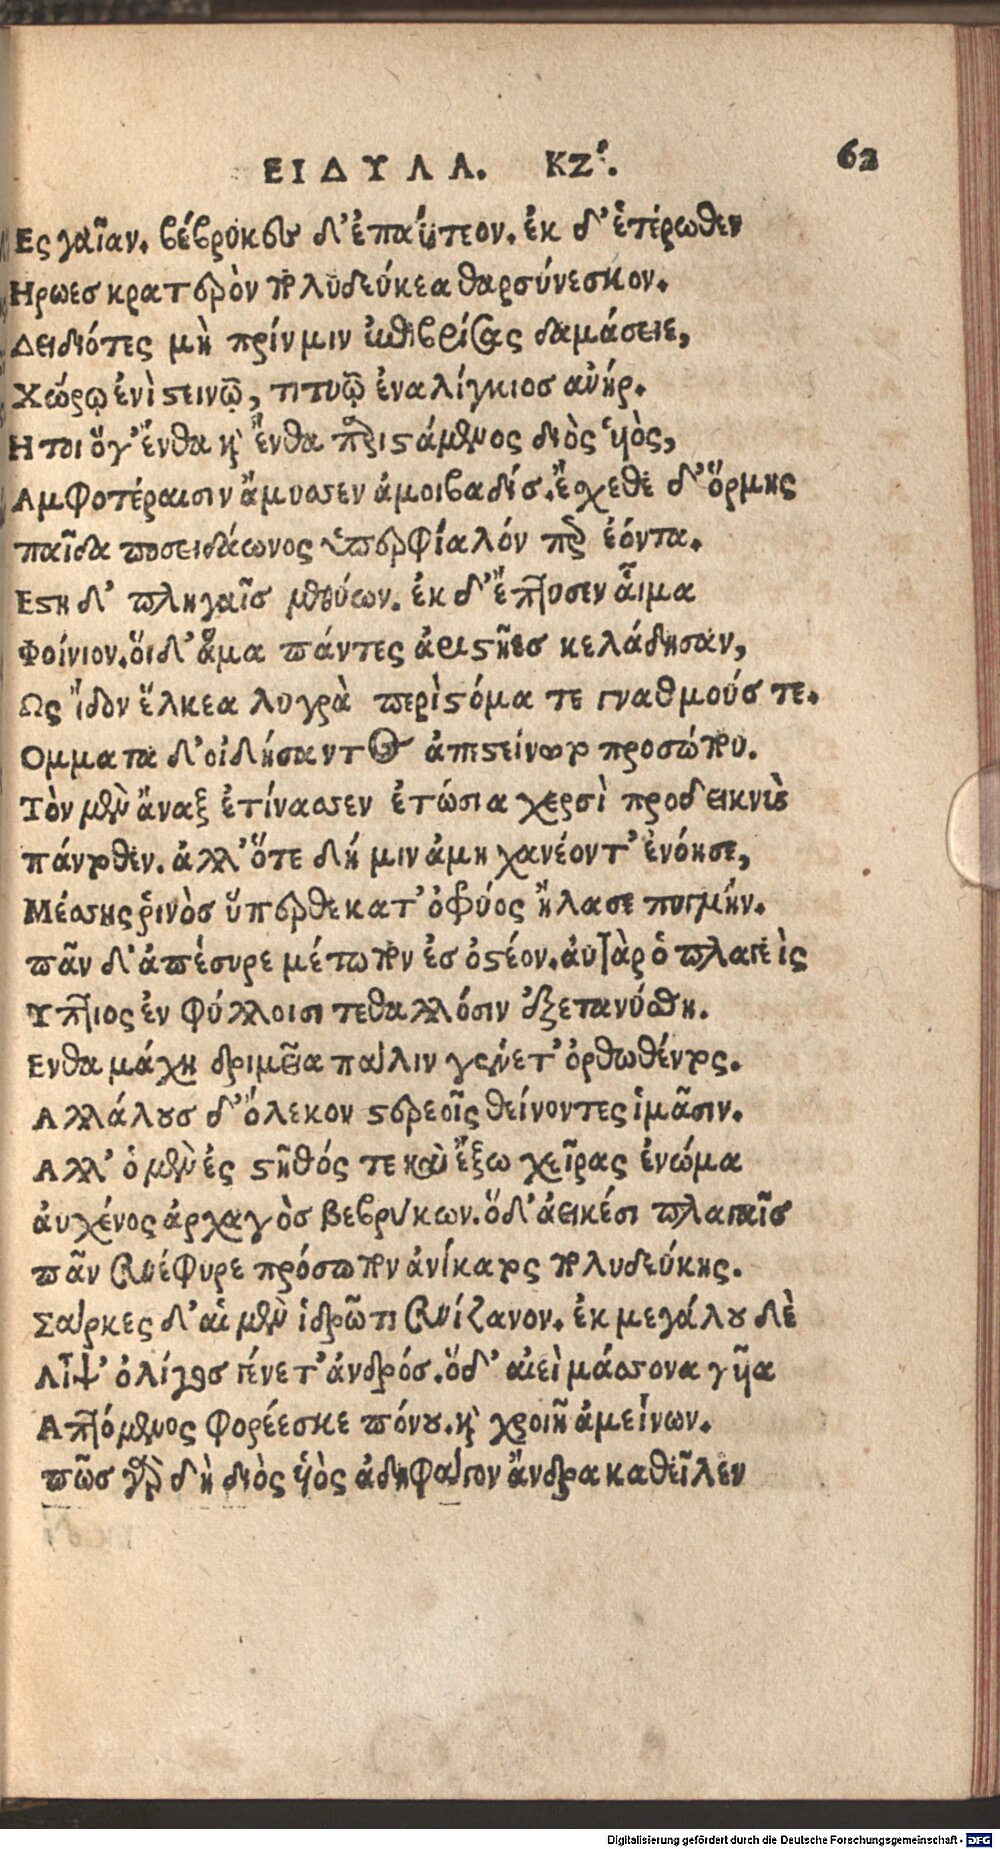 ΕΙΔΥΛΛ. ΚΖ'. 62
Ες γαῖαν. βέβρυκες δ' ἐπαΰτεον. ἐκ δ' ἑτέρωθεν
Ηρωες κρατερὸν πολυδεύκεα θαρσύνεσκον.
Δειδιότες μὴ πρίν μιν ἐπιβρίσας δαμάσειε,
Χώρῳ ἐνὶ στεινῷ, τιτυῷ ἐναλίγκιος ἀνήρ.
Ητοι ὅγ' ἔνθα καὶ ἔνθα παριστάμενος διὸς υἱὸς,
Αμφοτέραισιν ἄμυσσεν ἀμοιβαδίς. ἔσχεθε δ' ὅρμης
παῖδα ποσειδάωνος ὑπερφίαλόν περ ἐόντα.
Εστη δ' πληγαῖς μεθύων. ἐκ δ' ἔπτυσεν αἷμα
Φοίνιον. ὅι δ' ἅμα πάντες ἀριστῆες κελάδησαν,
Ως ἴδον ἕλκεα λυγρὰ περὶ στόμα τε γναθμούς τε.
Ομματα δ' οἰδήσαντος ἀπεστείνωτο προσώπου.
Τὸν μὲν ἄναξ ἐτίνασσεν ἐτώσια χερσὶ προδεικνὺς
πάντοθεν. ἀλλ' ὅτε δή μιν ἀμηχανέοντ' ἐνόησε,
Μέσσης ῥινὸς ὕπερθε κατ' ὀφρύος ἤλασε πυγμήν.
πᾶν δ' ἀπέσυρε μέτωπον ἐς ὀστέον. αὐτὰρ ὁ πλαγεὶς
Υπτιος ἐν φύλλοισι τεθαλλόσιν ἐξετανύσθη.
Ενθα μάχη δριμεῖα πάλιν γένετ' ὀρθωθέντος.
Αλλάλους δ' ὄλεκον στερεοῖς θείνοντες ἱμᾶσιν.
Αλλ' ὁ μὲν ἐς στῆθός τε καὶ ἔξω χεῖρας ἐνώμα
ἀυχένος ἀρχαγὸς βεβρύκων. ὅδ' ἀεικέσι πλαγαῖς
πᾶν συνέφυρε πρόσωπον ἀνίκατος πολυδεύκης.
Σάρκες δ' αἱ μὲν ἱδρῶτι συνίζανον. ἐκ μεγάλου δὲ
Αἶψ' ὀλίγος γένετ' ἀνδρός. ὅδ' αἰεὶ μάσσονα γυῖα
Απτόμενος φορέεσκε πόνου. καὶ χροιῇ ἀμείνων.
πῶς γὰρ δὴ διὸς υἱὸς ἀδηφάγον ἄνδρα καθεῖλεν
Digitalisierung gefördert durch die Deutsche Forschungsgemeinschaft - DFG